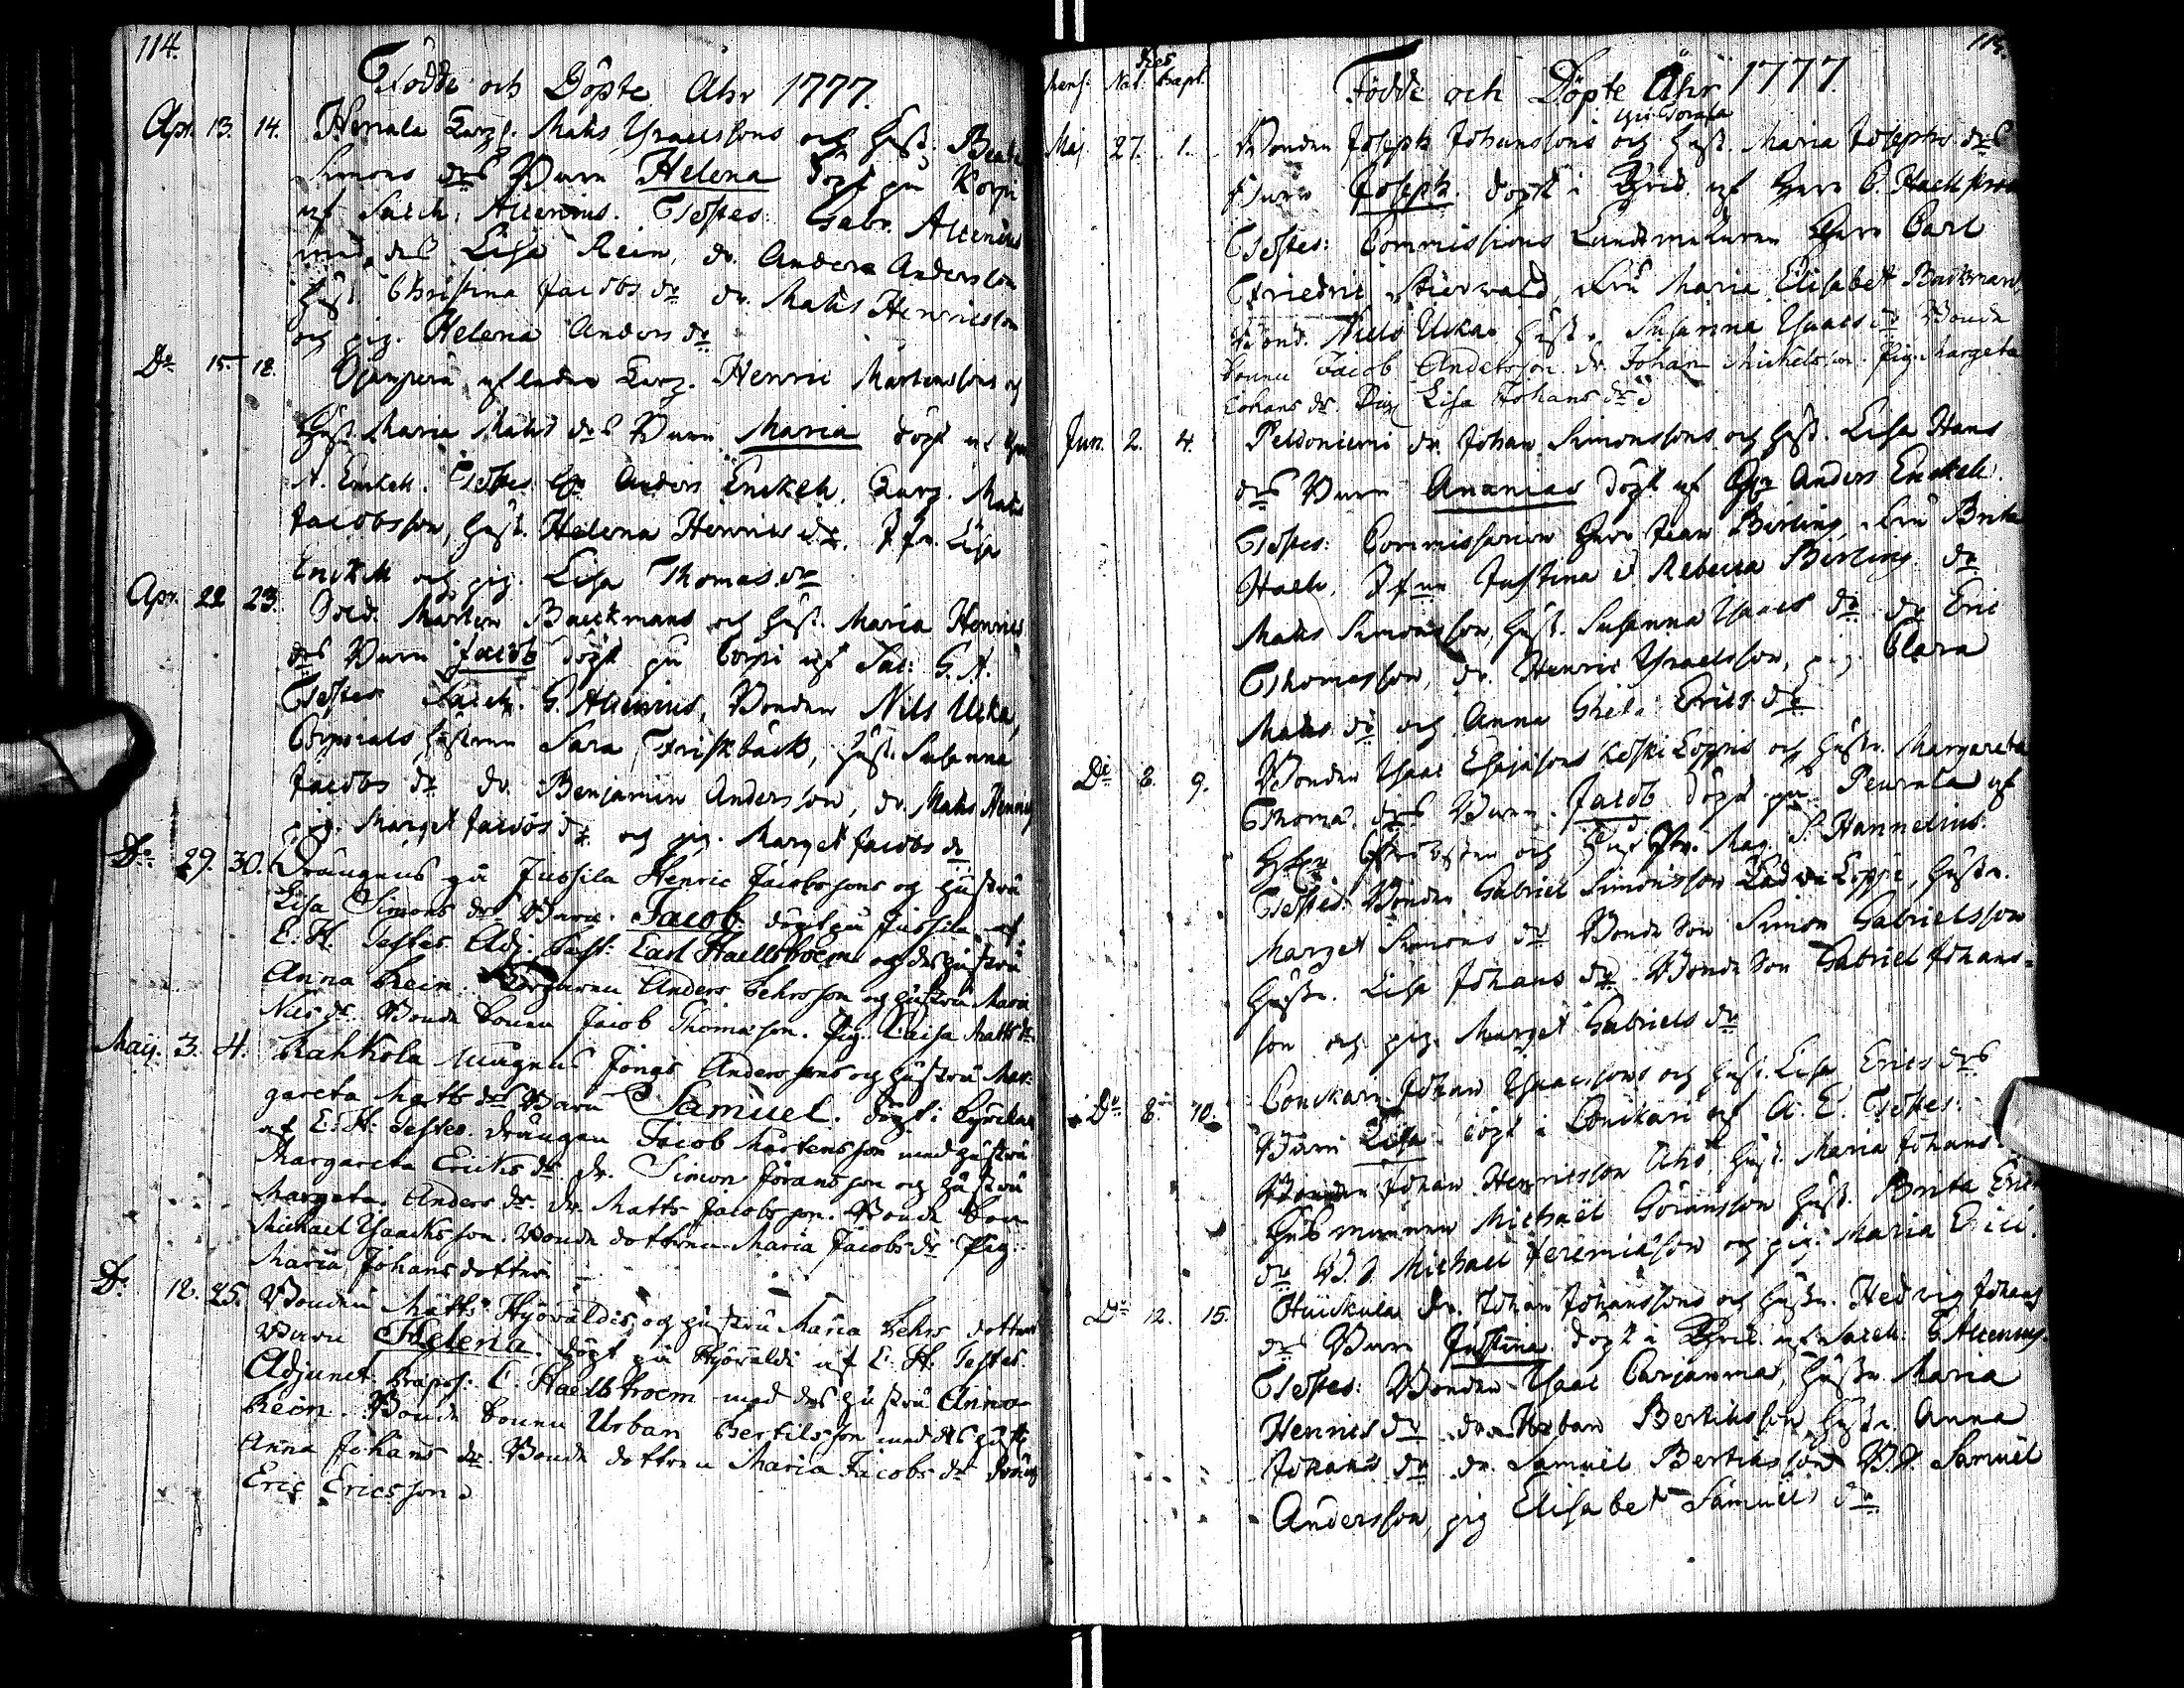 114.
Födde och Döpte Åhr 1777.
Apr. 13. 14. Herrala Torp. Mats Ysraelssons och Hust. Beata
Simons drs Barn Helena döpt på Korpi
af Sacell. Alcenius. Testes: Gabr. Alcenius
med des Lisa Rein, dr. Anders Andersson
Hust. Christina Jacobs dr dr. Mats Henricsson
och pig. Helena Anders dr
Do 15. 18. Torp. Henric Mårtenssons och
Hust. Maria Mats drs Barn Maria döpt af
A. Enckell. Testes Anders Enckell. Torp. Mats
Jacobsson, Hust. Helena Henrics dr. Jfr. Lisa
Enckell och pig. Lisa Thomas dr
Apr. 22 23. Sold. Morten Baeckmans och Hust. Maria Henrics
drs Barn Jacob döpt på Corpi af Sac: G. A.
Testes Sacell. G. Alcenius, Bonden Nils Ucka,
Corporals hustrun Sara Friskbäck, Hust. Susanna
Jacobs dr dr. Benjamin Andersson, dr. Mats Henrics
pig. Marget Jacobs dr och pig. Marget Jacobs dr
Do 29. 30. Drängens på Jussila Henric Jacobssons och hustru
Lisa Simons drs Barn. Jacob döpt på Jussila af
E. H. Testes Adj. Past: Earl Haellstroem och des hustru
Anna Rein. Torparen Anders Behrsson och hustru Maria
Nils dr. Bonde Sonen Jacob Thomasson. Pig. Caisa Matts dr.
Maij. 3. 4. Rahkola Mågens Jöngs Anderssons och hustru Mar-
gareta Matts drs Barn Samuel. döpt i Kyrckan
af E. H. Testes drängen Jacob Mårtensson med hustru
Margareta Ericks dr. dr. Simon Jöransson och hustru
Margeta Anders dr. dr. Matts Jacobsson. Bonde Son
Michael Ysaacksson. Bonde dottren Maria Jacobs dr Pig.
Maria Johans dotter
Do 12. 25. Bonden Matts Hyöväldis och hustru Maria Behrs dotters
Barn Helena. döpt på Hyövaldi af E. H. Testes.
Adjunct. E. Haellstroem med des hustru Anna
Rein. Bonde Sonen Urban Bertilsson med des hust.
Anna Johans dr Bonde dottren Maria Jacobs dr dräng
Eric Ericsson.
115.
Mens. Nat. bapt.
Födde och Döpte Åhr 1777
Maj 27. 1. Bonden Joseph Johanssons och Hust. Maria Josephs drs
Barn Joseph. döpt i af Herr C. Haellstroem
Testes: Commissions Landtmätaren Herr Carl
Friedric Stierwald, Fru Maria Elisabet Backman,
Bond. Niels Ucka Hust. Susanna Ysaacs dr Bonde
Sonen Jacob Andersson. dr. Johan Michelsson. Pig. Margeta
Johans dr. Pig Lisa Johans dr
Jun. 2. 4. Peldoniemi dr. Johan Simonssons och Hust. Lisa Hans
drs Barn Ananias döpt af Hr Anders Enckell.
Testes: Commissarien Herr Jean Birling, Fru Brita
Haell, Jfrur Justina & Rebecca Birling. dr
Mats Simonsson, Hust. Susanna Ysaacs dr dr Eric
Thomasson, dr. Henric Ysraelsson, pig. Clara
Mats dr och Anna Gheta Erics dr
Do 8. 9. Bonden Ysaac Esajasons Keski Loppis och Hustr. Margareta
Thomas drs Barn. Jacob döpt på Peurala af
Prosten och Mag. P. Hannelius.
Testes: Bonden Gabriel Simonsson Loppi, Hustr.
Marget Simons dr Bonde Son Simon Gabrielsson
Hustr. Lisa Johans dr. Bonde Son Gabriel Johans-
son och pig. Marget Gabriels dr
Do 8. 10. Couckari Johan Ysaacssons och Hust. Lisa Erics drs
Barn Lisa döpt i Couckari af A. E. Testes:
Bonden Johan Henricsson Aho, Hust. Maria Johans
Michaël Göransson Hust. Brita Erics
dr B. S. Michael Jeremiasson och pig. Maria Erici.
Do 12. 15. Huickula dr. Johan Johanssons och Hustr. Hedvig Johans
drs Barn Justina döpt i af Sacell: G. Alcenius.
Testes: Bonden Ysaac Carjanmaa, Hustr. Maria
Henrics dr dr. Urban Bertilsson Hustr. Anna
Johans dr dr. Samuel Bertilsson B. S. Samuel
Andersson, pig Elisabet Samuels dr